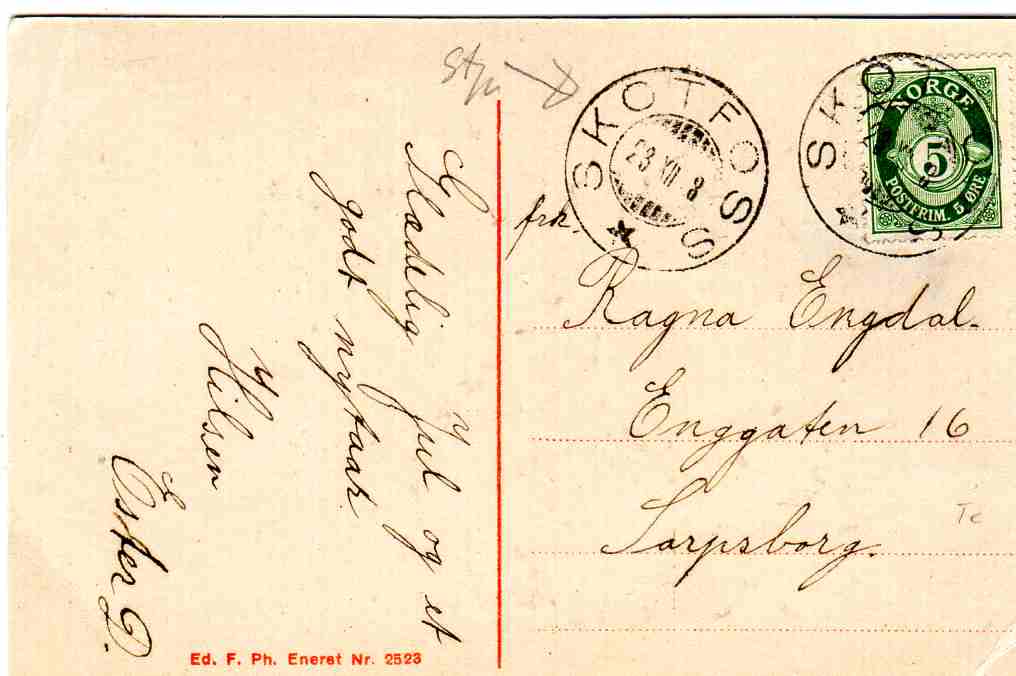 Glædelig Jul og et
godt nytaar
Hilsen
Ester D.
Ed. F. Ph. Eneret Nr. 2523
SKOTFOSS
23 XII 8
SKO
NORGE
5
POSTFRIM. 5 ØRE
frk.
Ragna Engdal.
Enggaten 16
Sarpsborg.